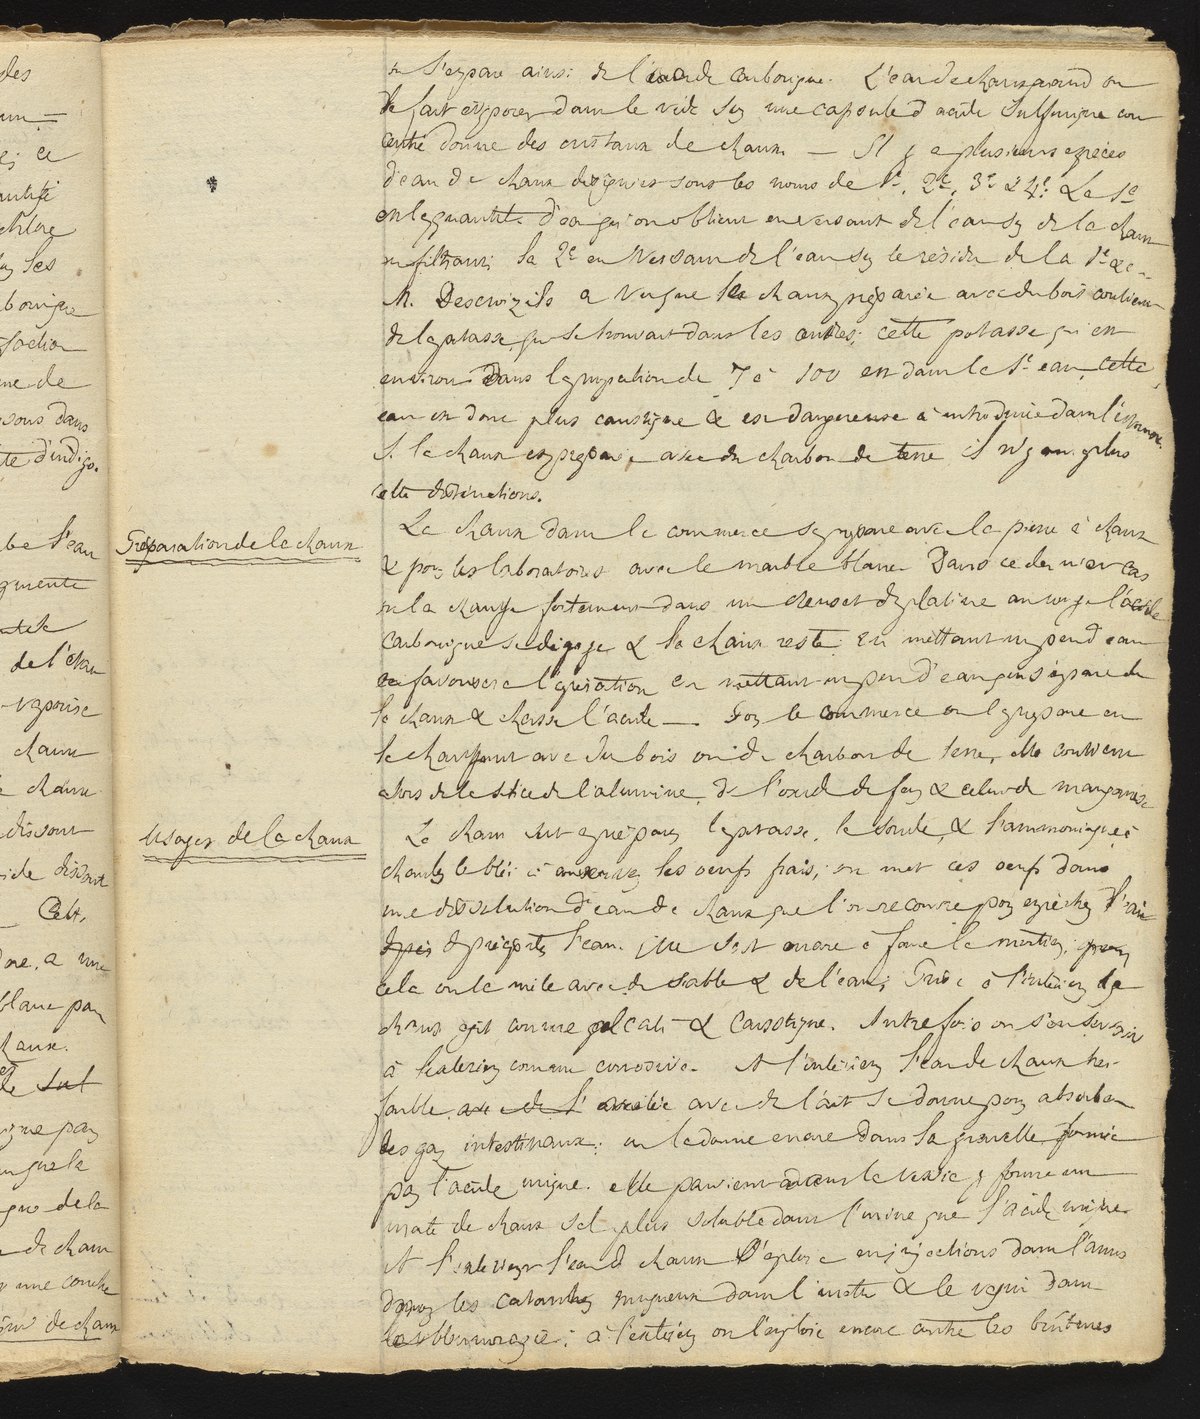 des
ce
chlore
ses
faction
ne de
sous dans
d'indigo.
l'eau
de l'eau
vaporise
chaux
chaux
disout
Cette
a une
blanc par
chaux.
que la
de la
de chaux
une couche
de chaux
on s'empare ainsi de l'acide carbonique. L'eau de chaux quand on
la fait évaporer dans le vide sur une capsule d'acide sulfurique con
centré donne des cristaux de chaux — Il y a plusieurs espèces
d'eau de chaux désignées sous les noms de 1e, 2e, 3e & 4e. La 1e
est la quantité d'eau qu'on obtient en versant de l'eau sur de la chaux
en filtrant; la 2e en versant de l'eau sur le résidu de la 1e &c.
M. Descroizils a vu que la chaux préparée avec du bois contient
de la potasse, qui se trouvait dans les cendres; cette potasse qui est
environ dans la proportion de 7 à 100 est dans la 1e eau, cette
eau est donc plus caustique & est dangereuse à introduire dans l'estomac
Si la chaux est préparée avec du charbon de terre il n'y a plus
cette distinctions.
Préparation de la chaux
La chaux dans le commerce se prépare avec la pierre à chaux
& pour les laboratoires avec le marbre blanc. Dans ce dernier cas
on la chauffe fortement dans un creuset de platine au rouge l'acide
carbonique se dégage & la chaux reste. En mettant un peu d'eau
on favorise l'opération en mettant un peu d'eau qui s'empare de
la chaux & chasse l'acide —. Pour le commerce on la prépare en
la chauffant avec du bois ou du charbon de terre, elle contient
alors de la silice de l'alumine, de l'oxide de fer & celui de manganèse
Usages de la chaux
La chaux sert à préparer la potasse, la soude, & l'ammoniaque; à
chauler le blé; à conserver les oeufs frais; on met ces oeufs dans
une dissolution d'eau de chaux que l'on recouvre pour empêcher l'air
de précipiter l'eau. elle sert encore à faire le mortier, pour
cela on la mêle avec du sable & de l'eau; Prise à l'intérieur la
chaux agit comme alcali & caustique. Autrefois on s'en servait
à l'extérieur comme corrosive. A l'intérieur l'eau de chaux très
faible avec de l'arséc avec du lait se donne pour absorber
les gaz intestinaux; on la donne encore dans la gravelle formée
par l'acide urique. elle parvient dans la vessie y forme un
urate de chaux sel plus soluble dans l'urine que l'acide urique
A l'extérieur l'eau de chaux s'emploie en injections dans l'anus
dans les catarrhes muqueux dans l'urètre & le vagin dans
la blennoragie; à l'extérieur on l'emploie encore contre les